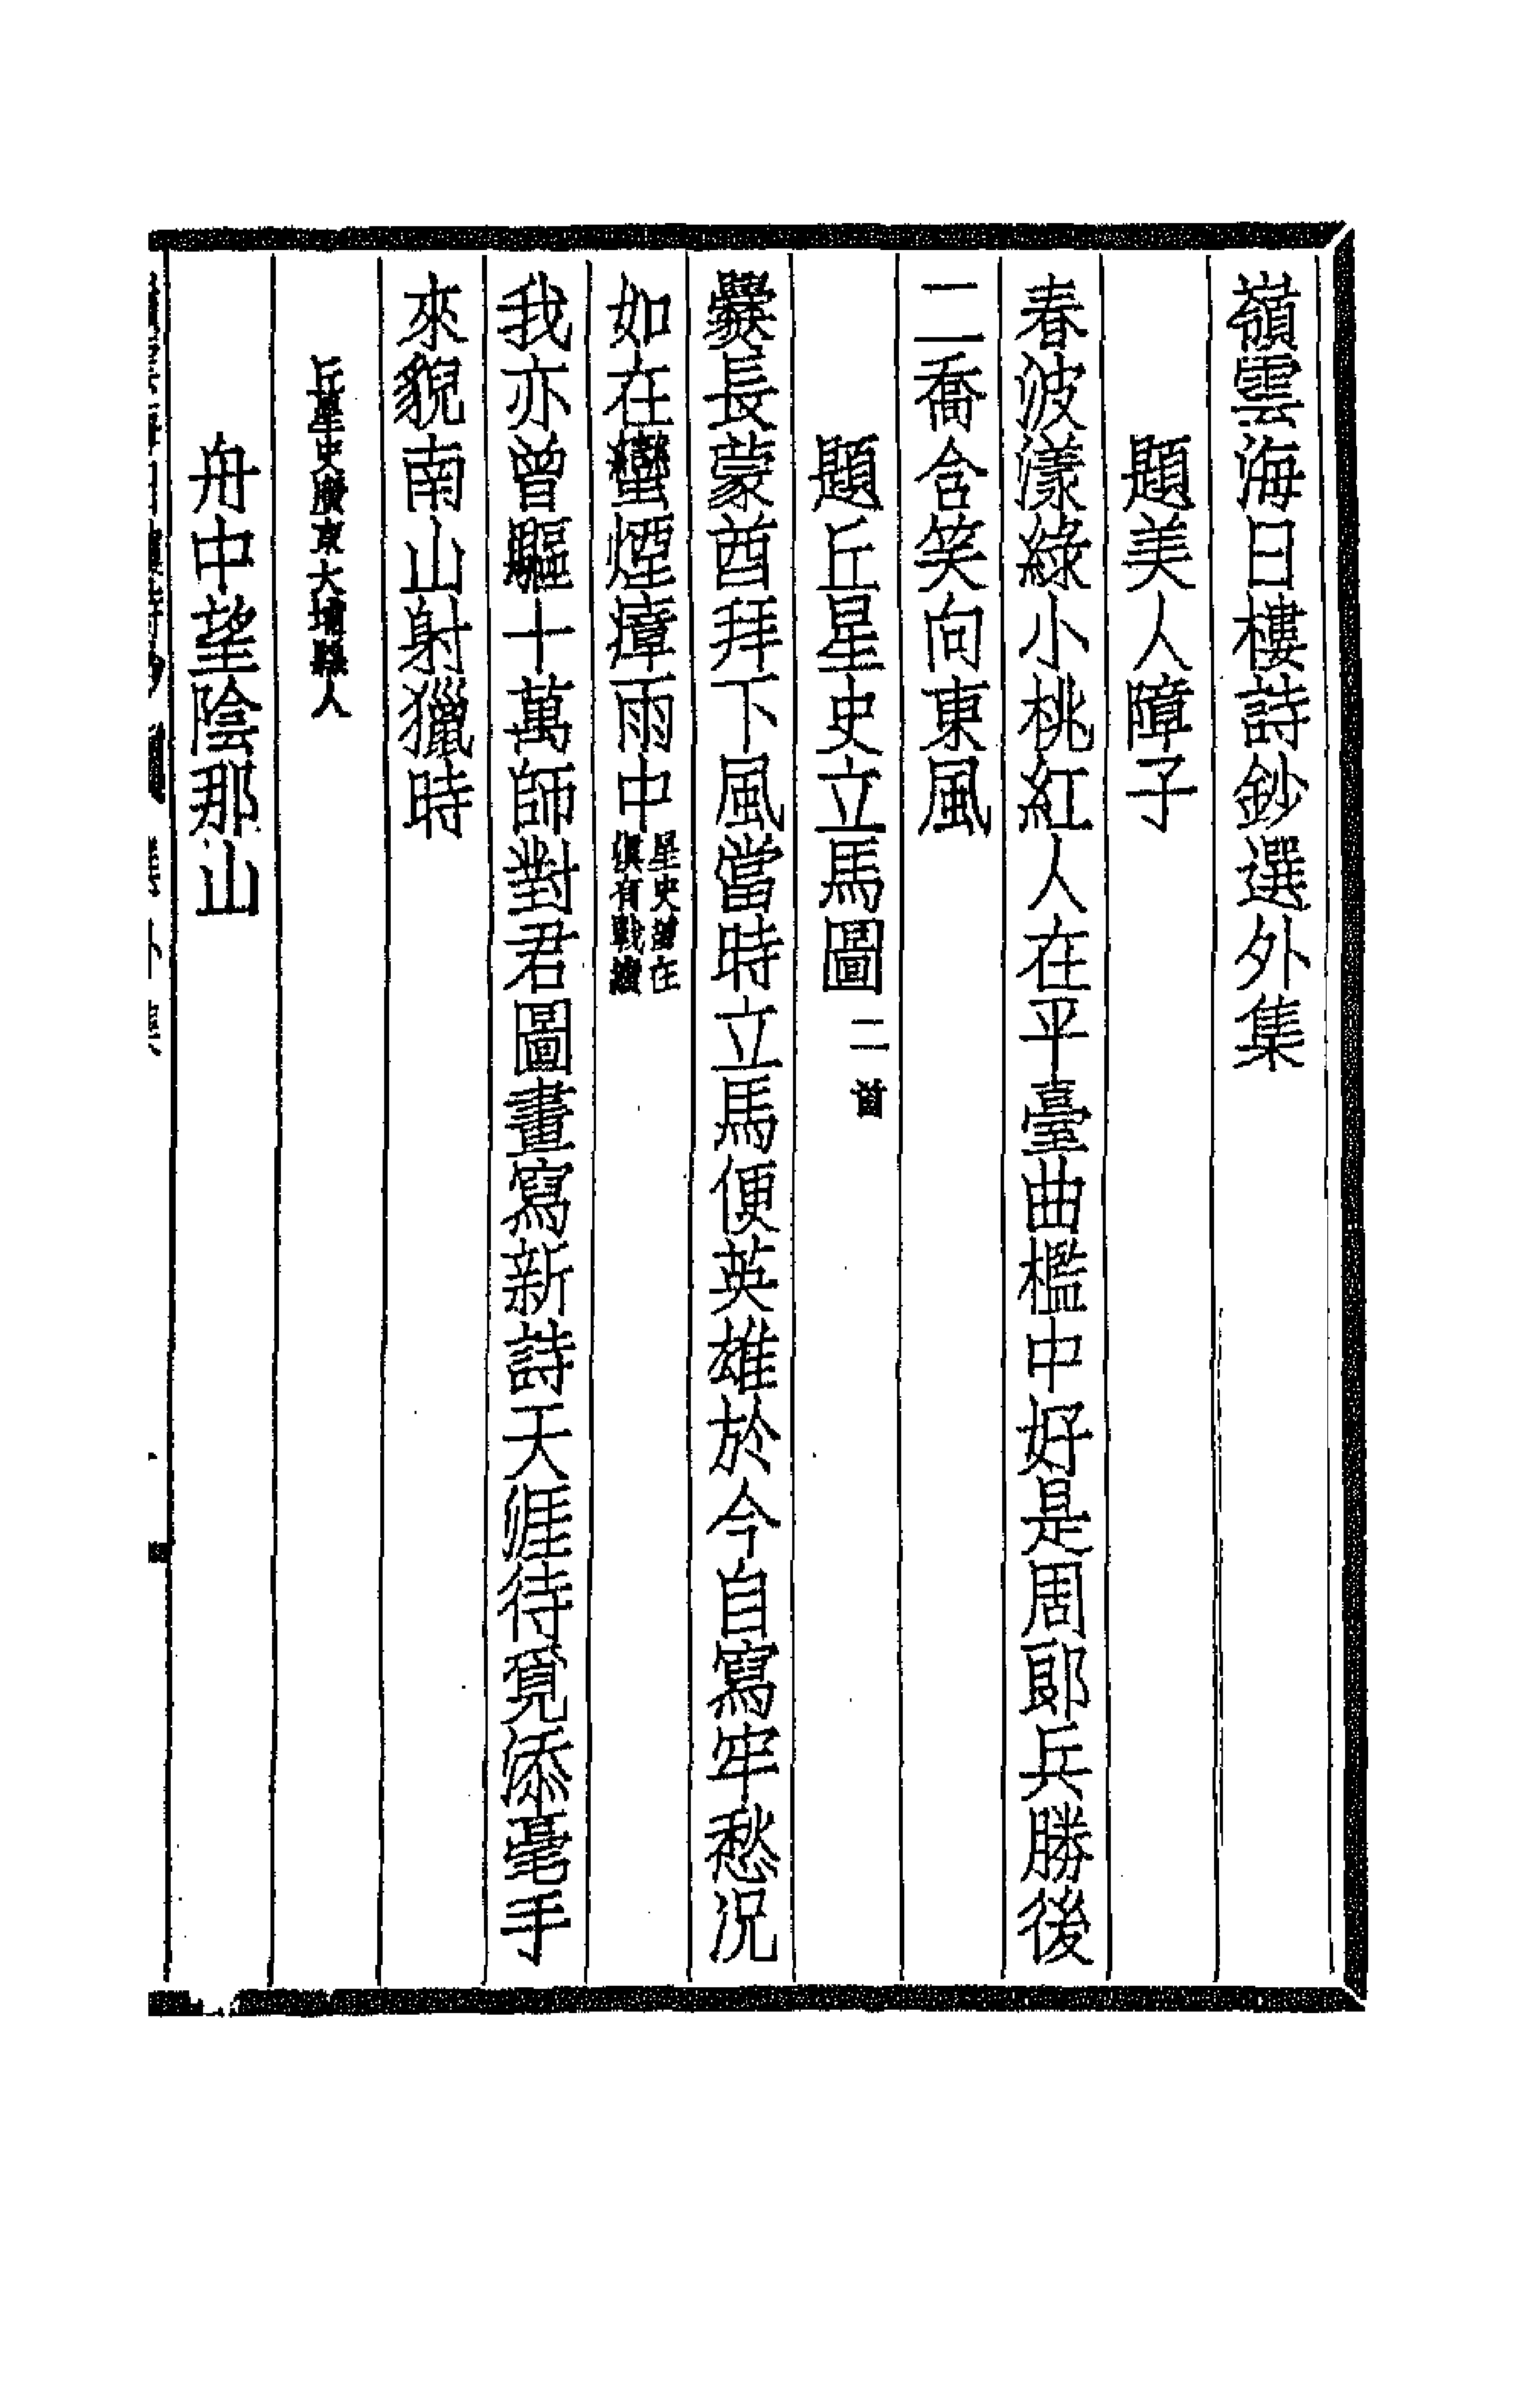 嶺雲海日樓詩鈔選外集
題美人障子
春波漾綠小桃紅人在平臺曲檻中好是周郎兵勝後
二喬含笑向東風
題丘星史立馬圖二首
爨長蒙酋拜下風當時立馬便英雄於今自寫牢愁況
如在蠻煙瘴雨中星史曾在滇有戰績
我亦曾驅十萬師對君圖畫寫新詩天涯待覓添毫手
來貌南山射獵時
丘星史廣東大埔縣人
舟中望陰那山